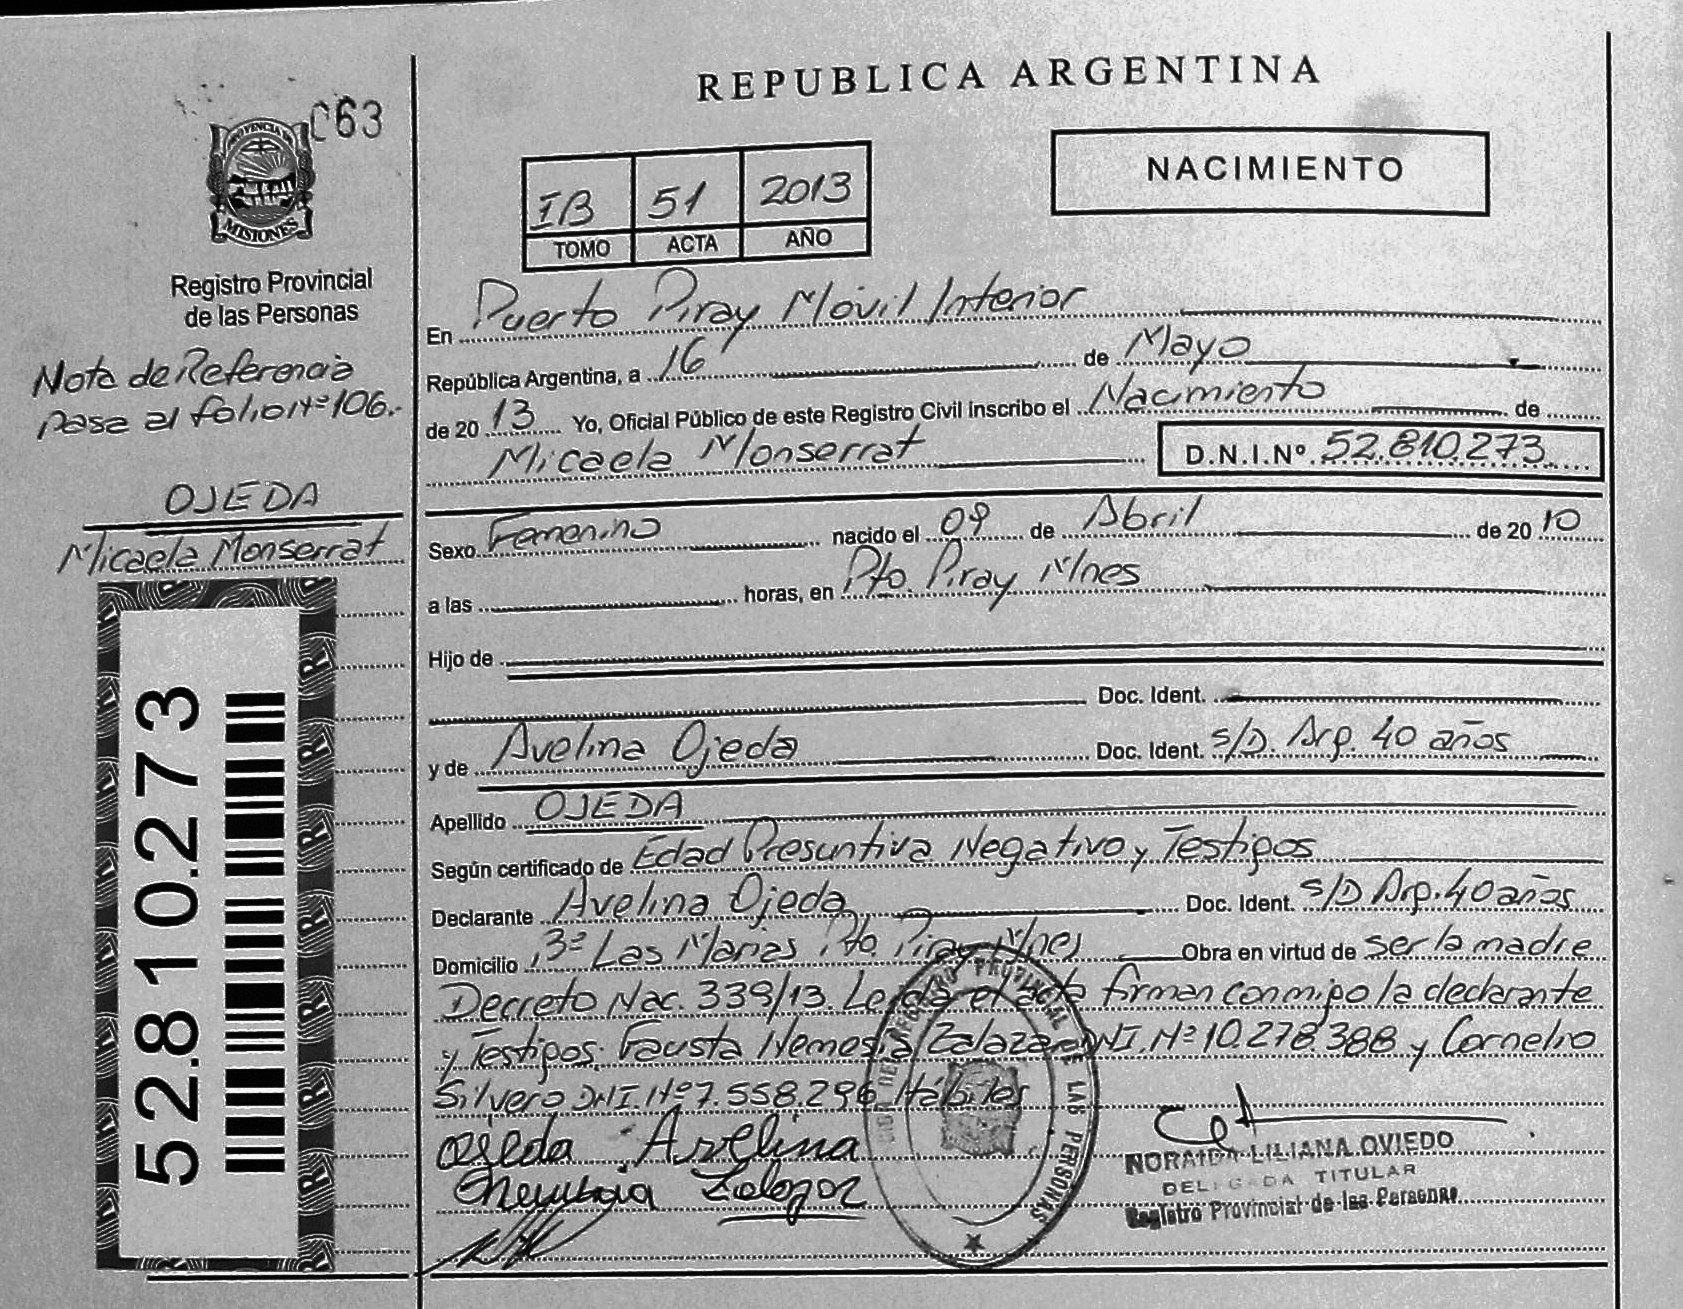 REPUBLICA ARGENTINA
063
PROVINCIA DE
MISIONES
Registro Provincial
de las Personas
Nota de Referencia
Pasa al folio Nº 106.-
OJEDA
Micaela Monserrat
52.810.273
NACIMIENTO
IB 51 2013
TOMO ACTA AÑO
En Puerto Piray Móvil Interior
República Argentina, a 16 de Mayo
de 2013 Yo, Oficial Público de este Registro Civil inscribo el Nacimiento de
Micaela Monserrat D.N.I.Nº. 52.810.273
Sexo Femenino nacido el 09 de Abril de 2010
a las horas, en Pto. Piray Mnes
Hijo de
Doc. Ident.
y de Avelina Ojeda Doc. Ident. s/D. Arg. 40 años
Apellido OJEDA
Según certificado de Edad Presuntiva Negativo y Testigos
Declarante Avelina Ojeda Doc. Ident. s/D Arg. 40 años
Domicilio Bº Las Marias Pto. Piray Mnes Obra en virtud de ser la madre
Decreto Nac. 339/13. Leída el acta firman conmigo la declarante
y Testigos: Fausta Nemesia Zalazar DNI. Nº 10.278.388 y Cornelio
Silvero DNI. Nº 7.558.296 Hábiles
Ojeda Avelina
Zalazar
REGISTRO PROVINCIAL DE LAS PERSONAS
NORAIDA LILIANA OVIEDO
DELEGADA TITULAR
Registro Provincial de las Personas